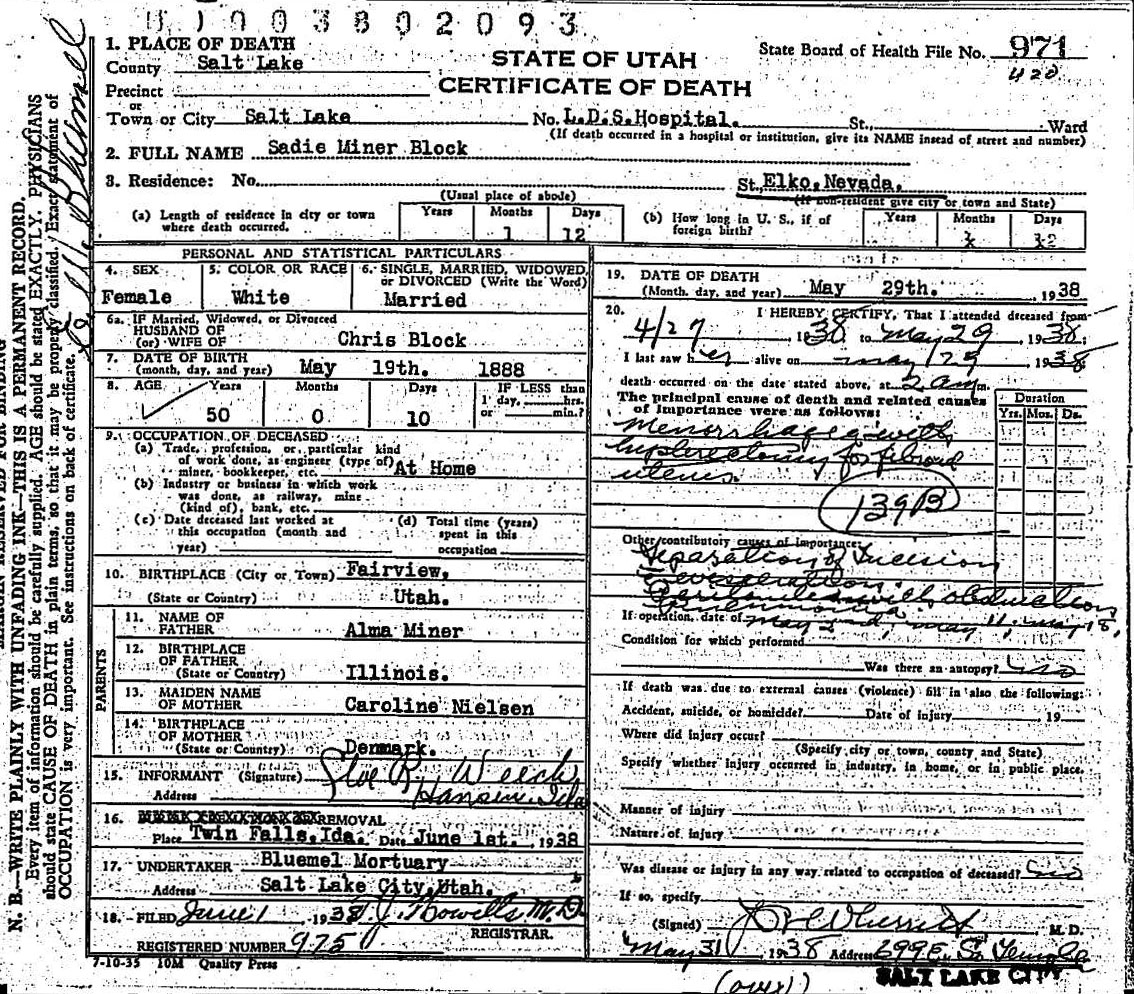 003802093
1. PLACE OF DEATH
County Salt Lake
Precinct
or
Town or City Salt Lake No. L.D.S.Hospital. St., Ward
(If death occurred in a hospital or institution, give its NAME insead of street and number)
STATE OF UTAH
CERTIFICATE OF DEATH
State Board of Health File No. 971
420
2. FULL NAME Sadie Miner Block
3. Residence: No. St. Elko, Nevada.
(Usual place of abode) (If non-resident give city or town and State)
(a) Length of residence in city or town where death occurred. Years Months 1 Days 12
(b) How long in U. S., if of foreign birth? Years Months Days
PERSONAL AND STATISTICAL PARTICULARS
4. SEX Female
5. COLOR OR RACE White
6. SINGLE, MARRIED, WIDOWED, or DIVORCED (Write the Word) Married
6a. IF Married, Widowed, or Divorced
HUSBAND OF
(or) WIFE OF Chris Block
7. DATE OF BIRTH
(month, day, and year) May 19th. 1888
8. AGE Years 50 Months 0 Days 10 IF LESS than 1 day, hrs. or min.?
9. OCCUPATION OF DECEASED
(a) Trade, profession, or particular kind
of work done, as engineer (type of)
miner, bookkeeper, etc. At Home
(b) Industry or business in which work
was done, as railway, mine
(kind of), bank, etc.
(c) Date deceased last worked at
this occupation (month and
year)
(d) Total time (years)
spent in this
occupation
10. BIRTHPLACE (City or Town) Fairview,
(State or Country) Utah.
PARENTS
11. NAME OF
FATHER Alma Miner
12. BIRTHPLACE
OF FATHER
(State or Country) Illinois.
13. MAIDEN NAME
OF MOTHER Caroline Nielsen
14. BIRTHPLACE
OF MOTHER
(State or Country) Denmark.
15. INFORMANT (Signature) R. Weech
Address Hansen, Ida
16. REMOVAL
Place Twin Falls, Ida. Date June 1st. , 1938
17. UNDERTAKER Bluemel Mortuary
Address Salt Lake City, Utah.
18. FILED June 1 1938 T. J. Howells M.D.
REGISTRAR.
REGISTERED NUMBER 975
7-10-35 10M Quality Press
19. DATE OF DEATH
(Month, day, and year) May 29th. , 1938
20. I HEREBY CERTIFY, That I attended deceased from
4/27 , 1938 to May 29 , 1938
I last saw her alive on May/29 1938
death occurred on the date stated above, at 2 am m.
The principal cause of death and related causes
of importance were as follows:
Duration
Yrs. Mos. Ds.
Menorrhagea with
hysterectomy for fibroid
uterus.
139B
Other contributory causes of importance:
Separation of Incision
Evisceration.
Peritonitis with obstruction
Pneumonia
If operation, date of May 2nd, May 11, May 18,
Condition for which performed
Was there an autopsy? no
If death was due to external causes (violence) fill in also the following:
Accident, suicide, or homicide? Date of injury , 19
Where did injury occur?
(Specify city or town, county and State)
Specify whether injury occurred in industry, in home, or in public place.
Manner of injury
Nature of injury
Was disease or injury in any way related to occupation of deceased? no
If so, specify
(Signed) M. D.
May 31 , 1938 Address 699 E. So Temple
SALT LAKE CITY
(over)
N. B.—WRITE PLAINLY WITH UNFADING INK—THIS IS A PERMANENT RECORD.
Every item of information should be carefully supplied. AGE should be stated EXACTLY. PHYSICIANS
should state CAUSE OF DEATH in plain terms, so that it may be properly classified. Exact statement of
OCCUPATION is very important. See instructions on back of certificate.